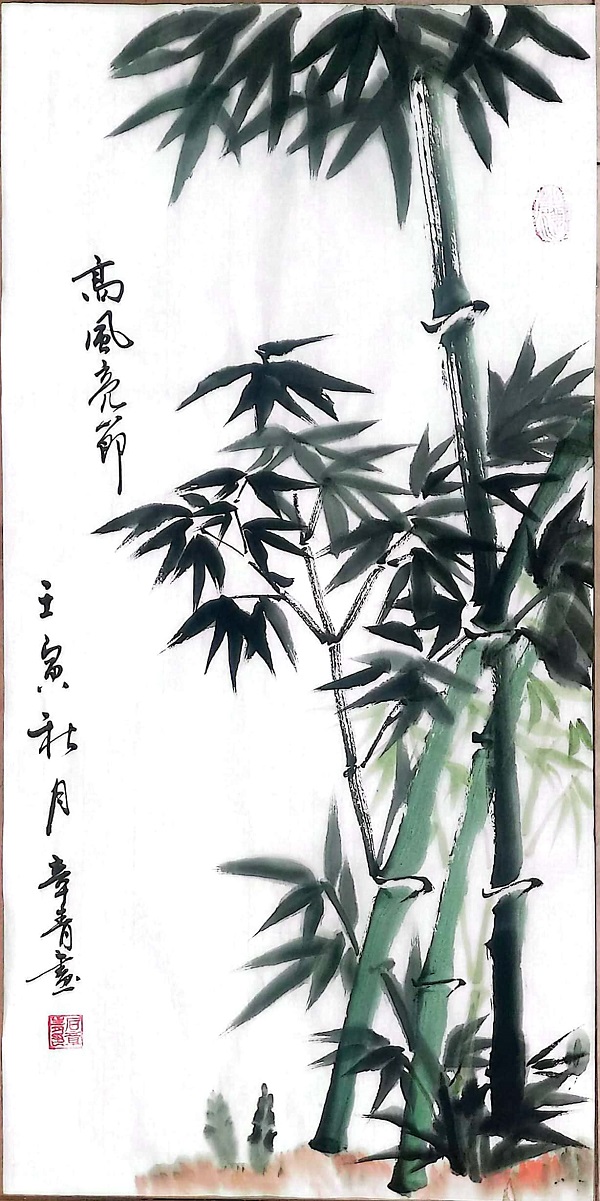 高风亮節
壬寅秋月
章青画